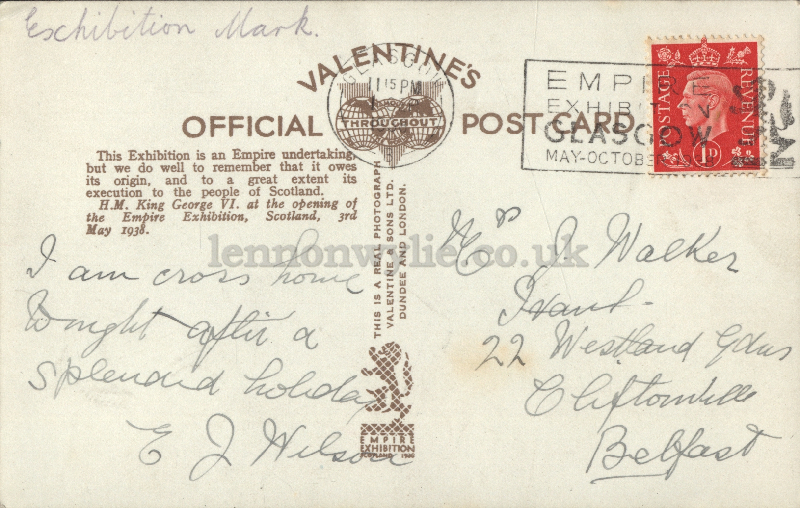 Exhibition Mark.
VALENTINE'S
GLASGOW
11 15 PM
THROUGHOUT
OFFICIAL POST CARD
EMPIRE
EXHIBITION
GLASGOW
MAY-OCTOBER
POSTAGE REVENUE
1D
This Exhibition is an Empire undertaking,
but we do well to remember that it owes
its origin, and to a great extent its
execution to the people of Scotland.
H.M. King George VI. at the opening of
the Empire Exhibition, Scotland, 3rd
May 1938.
lennonwylie.co.uk
I am cross home
tonight after a
splendid holiday
E J Wilson
THIS IS A REAL PHOTOGRAPH
VALENTINE & SONS LTD.
DUNDEE AND LONDON.
EMPIRE
EXHIBITION
SCOTLAND 1938
J. Walker
22 Westland Gdns
Cliftonville
Belfast